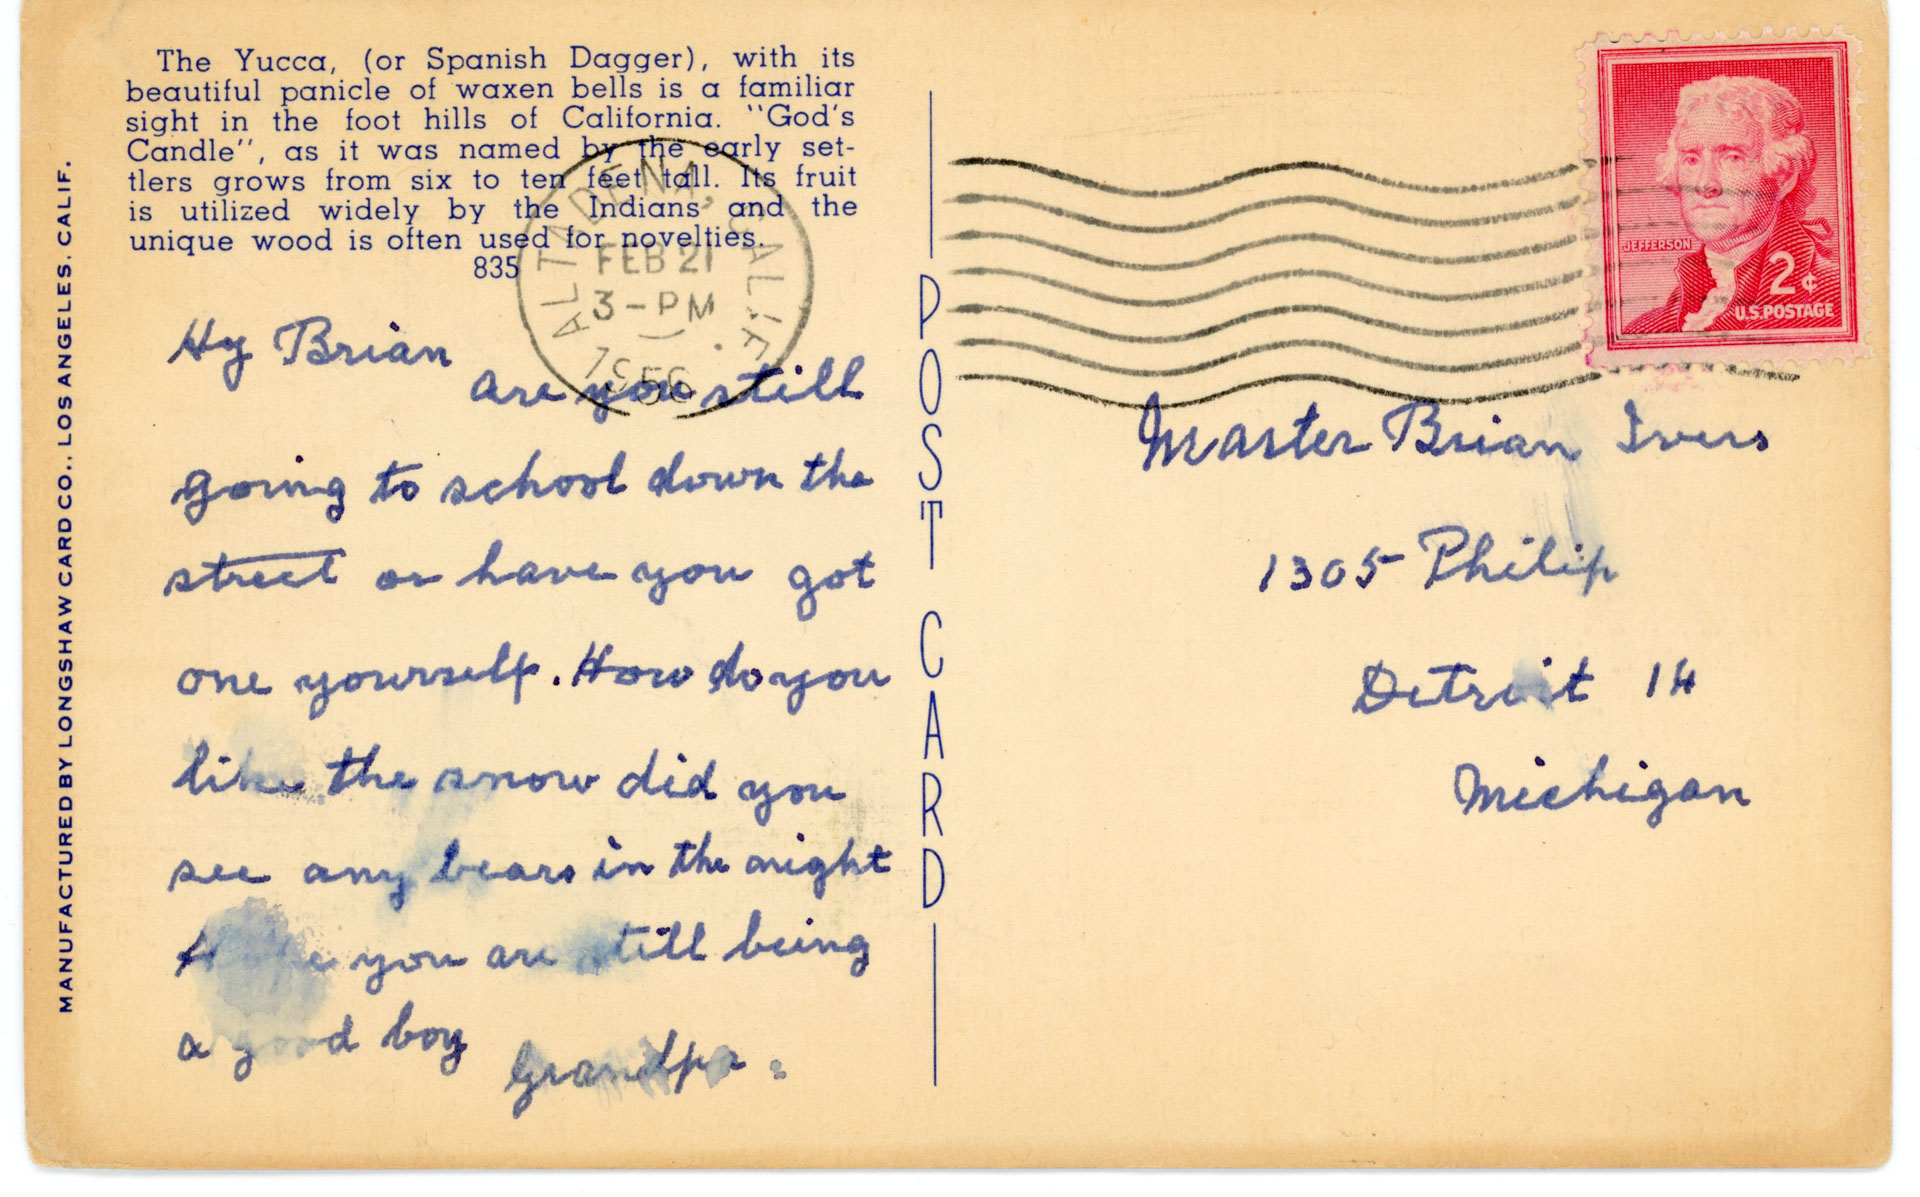 The Yucca, (or Spanish Dagger), with its
beautiful panicle of waxen bells is a familiar
sight in the foot hills of California. "God's
Candle", as it was named by the early set-
tlers grows from six to ten feet tall. Its fruit
is utilized widely by the Indians and the
unique wood is often used for novelties.
835
MANUFACTURED BY LONGSHAW CARD CO., LOS ANGELES, CALIF.
ALTADENA, CALIF.
FEB 21
3-PM
1956
Hy Brian
are you still
going to school down the
street or have you got
one yourself. How do you
like the snow did you
see any bears in the night
Hope you are still being
a good boy
Grandpa.
POST CARD
JEFFERSON
2¢
U.S. POSTAGE
Master Brian Ivers
1305 Philip
Detroit 14
Michigan